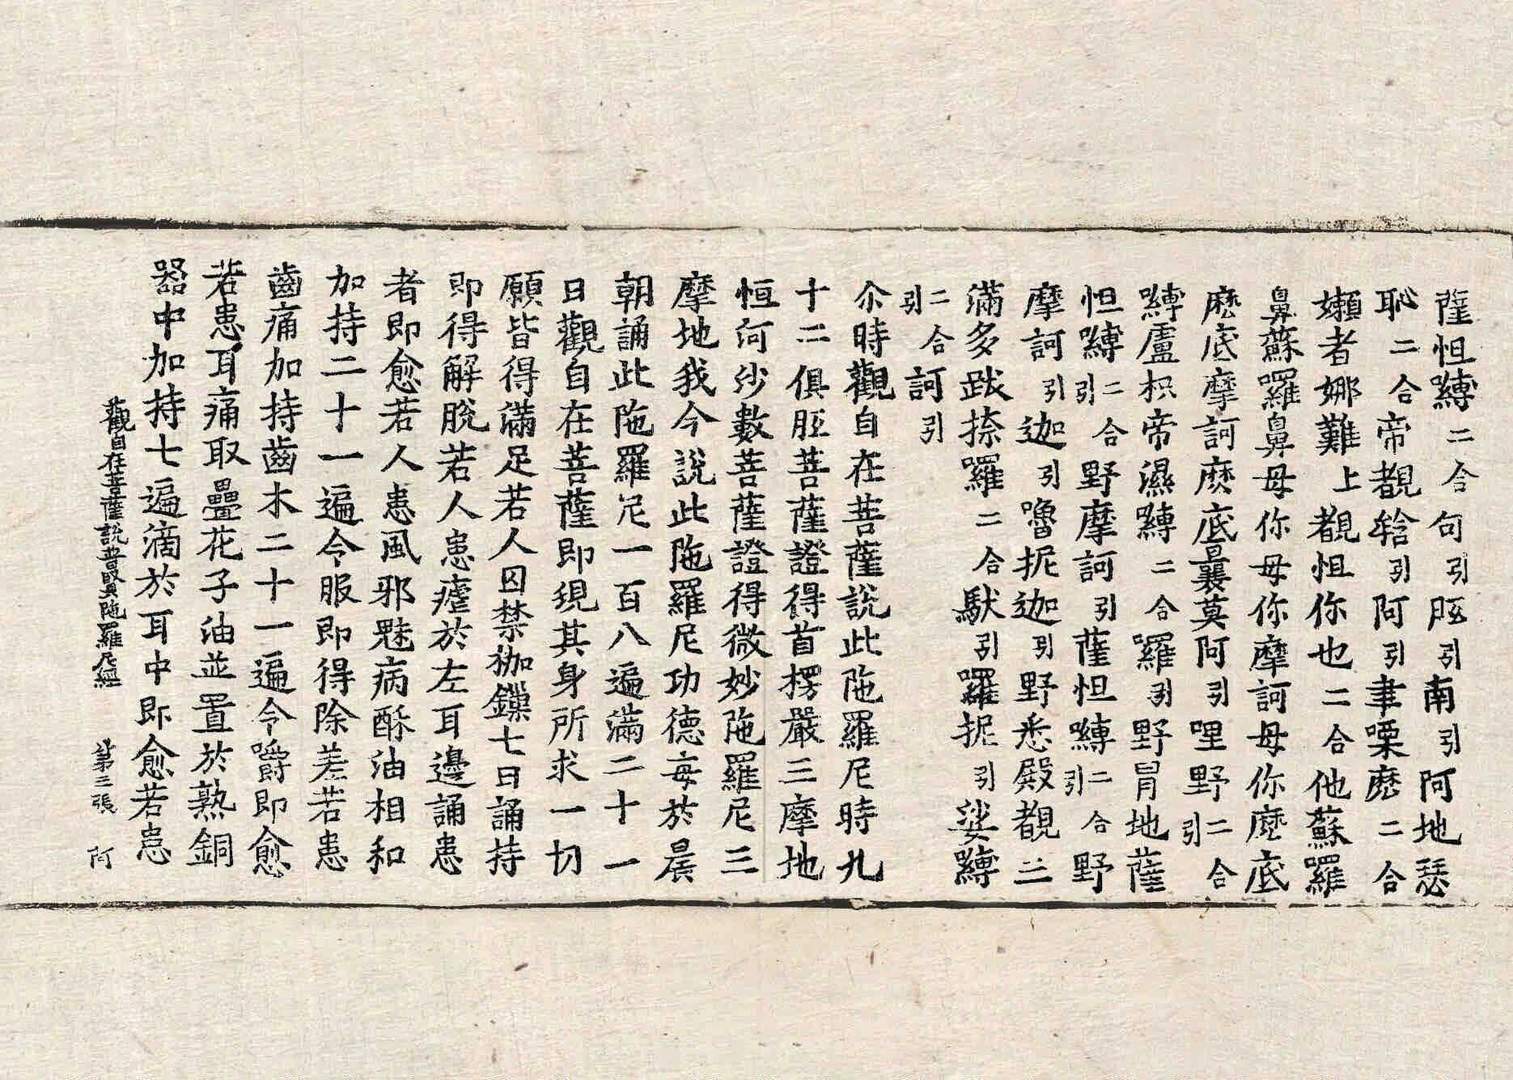 薩怛嚩二合句引胝引南引阿地瑟
恥二合帝覩㝓引阿引聿㗚麽二合
嬾者娜難上覩怛你也二合他蘇羅
鼻蘇囉鼻母你母你摩訶母你麽底
麽底摩訶麽底曩莫阿引哩野引二合
嚩盧枳帝濕嚩二合羅引野冐地薩
怛嚩引二合野摩訶引薩怛嚩引二合野
摩訶引迦引嚕抳迦引野悉殿覩
滿多跋捺羅二合馱引囉抳引娑嚩
引二合訶引
尒時觀自在菩薩說此陁羅尼時九
十二俱胝菩薩證得首楞嚴三摩地
恒河沙數菩薩證得微妙陁羅尼三
摩地我今說此陁羅尼功德每於晨
朝誦此陁羅尼一百八遍滿二十一
日觀自在菩薩即現其身所求一切
願皆得滿足若人囚禁枷鏁七日誦持
即得解脫若人患瘧於左耳邊誦患
者即愈若人患風邪魅病酥油相和
加持二十一遍令服即得除差若患
齒痛加持齒木二十一遍令嚼即愈
若患耳痛取疊花子油並置於熟銅
器中加持七遍滴於耳中即愈若患
觀自在菩薩說普賢陁羅尼經 第三張 阿